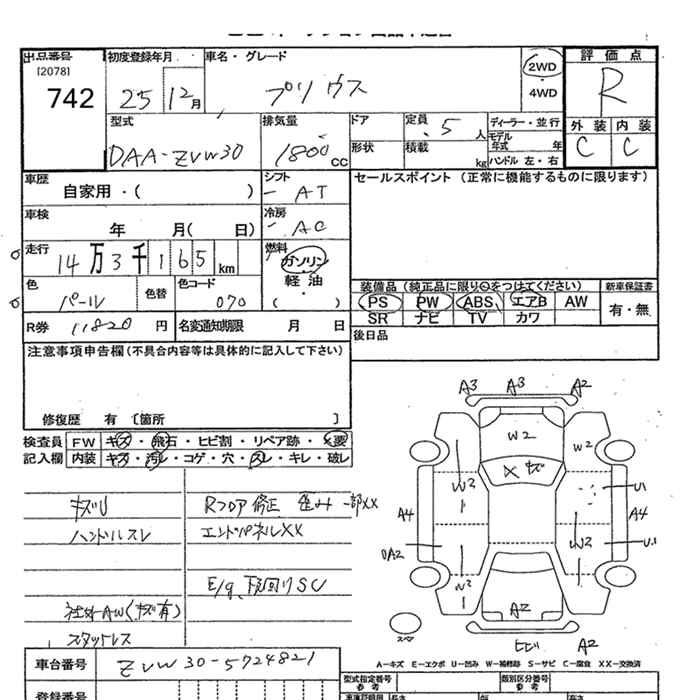 出品番号
[2078]
742
初度登録年月
25 12月
車名・グレード
プリウス
2WD
・
4WD
評価点
R
外装 内装
C C
型式
DAA-ZVW30
排気量
1800 CC
ドア
形状
定員
5 人
積載
kg
ディーラー・並行
モデル
年式 年
ハンドル 左・右
車歴
自家用・( )
シフト
AT
セールスポイント (正常に機能するものに限ります)
車検
年 月( 日)
冷房
AC
走行
14万3千165km
燃料
ガソリン
軽油
( )
色
パール
色替
色コード
070
装備品 (純正品に限り○をつけてください)
新車保証書
PS PW ABS エアB AW
SR ナビ TV カワ
有・無
R券 11820 円
名変通知期限 月 日
後日品
注意事項申告欄(不具合内容等は具体的に記入して下さい)
修復歴 有 [箇所 ]
検査員
記入欄
FW キズ・飛石・ヒビ割・リペア跡・×要
内装 キズ・汚レ・コゲ・穴・スレ・キレ・破レ
キズU
ハンドルスレ
社外AW(キズ有)
スタッドレス
Rフロア修正 歪み 一部XX
エンドパネルXX
E/g、下回りSC
A3 A3 A2
W2 W2
W2
X キズ
U1
A4 A4
W2 U1
DA2
W2
A2
スペア
ヒビ A2
A-キズ E-エクボ U-凹み W-補修跡 S-サビ C-腐食 XX-交換済
車台番号
ZVW30-5724821
型式指定番号
参考
類別区分番号
参考
登録番号
長さ